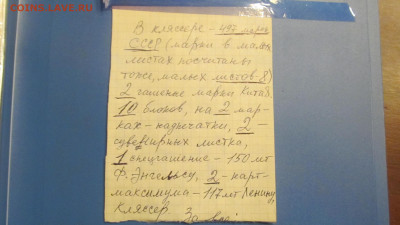 COINS.LAVE.RU
В кляссере - 497 марок
СССР (марки в малых
листах посчитаны
тоже, малых листов-8)
2 гашенные марки Китая
10 блоков, на 2 мар-
ках - надпечатки, 2 -
сувенирных листка,
1 спецгашение - 150 лет
Ф. Энгельсу, 2 - карт-
максимума - 117 лет Ленину,
Кляссер. За все: